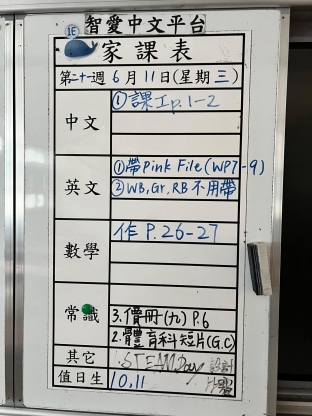 1E
智愛中文平台
家課表
第二十一週 6月11日(星期三)
中文
①課工p.1-2
英文
①帶Pink File(WP7-9)
②WB, Gr, RB 不用帶
數學
作 P.26-27
常識
3.價冊(九) P.6
2.體育科短片(G.C)
其它
STEAM Day 設計
值日生
10,11